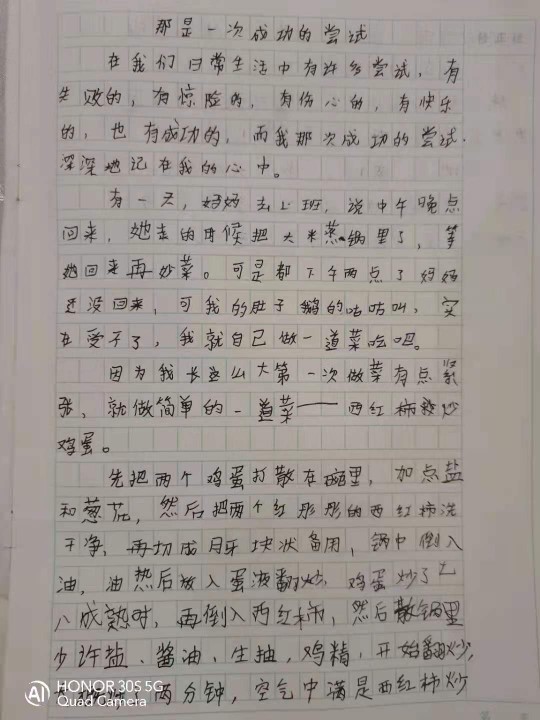 那是一次成功的尝试
在我们日常生活中有许多尝试，有
失败的，有惊险的，有伤心的，有快乐
的，也有成功的，而我那次成功的尝试，
深深地记在我的心中。
有一天，妈妈去上班，说中午晚点
回来，她走的时候把大米蒸锅里了，等
她回来再炒菜。可是都下午两点了妈妈
还没回来，可我的肚子鹅的咕咕叫，实
在受不了，我就自己做一道菜吃吧。
因为我长这么大第一次做菜有点紧
张，就做简单的一道菜——西红柿炒
鸡蛋。
先把两个鸡蛋打散在碗里，加点盐
和葱花，然后把两个红彤彤的西红柿洗
干净，再切成月牙块状备用，锅中倒入
油，油热后放入蛋液翻炒，鸡蛋炒了七
八成熟时，再倒入西红柿，然后锅里
少许盐、酱油、生抽，鸡精，开始翻炒，
两分钟，空气中满是西红柿炒
AI HONOR 30S 5G
Quad Camera